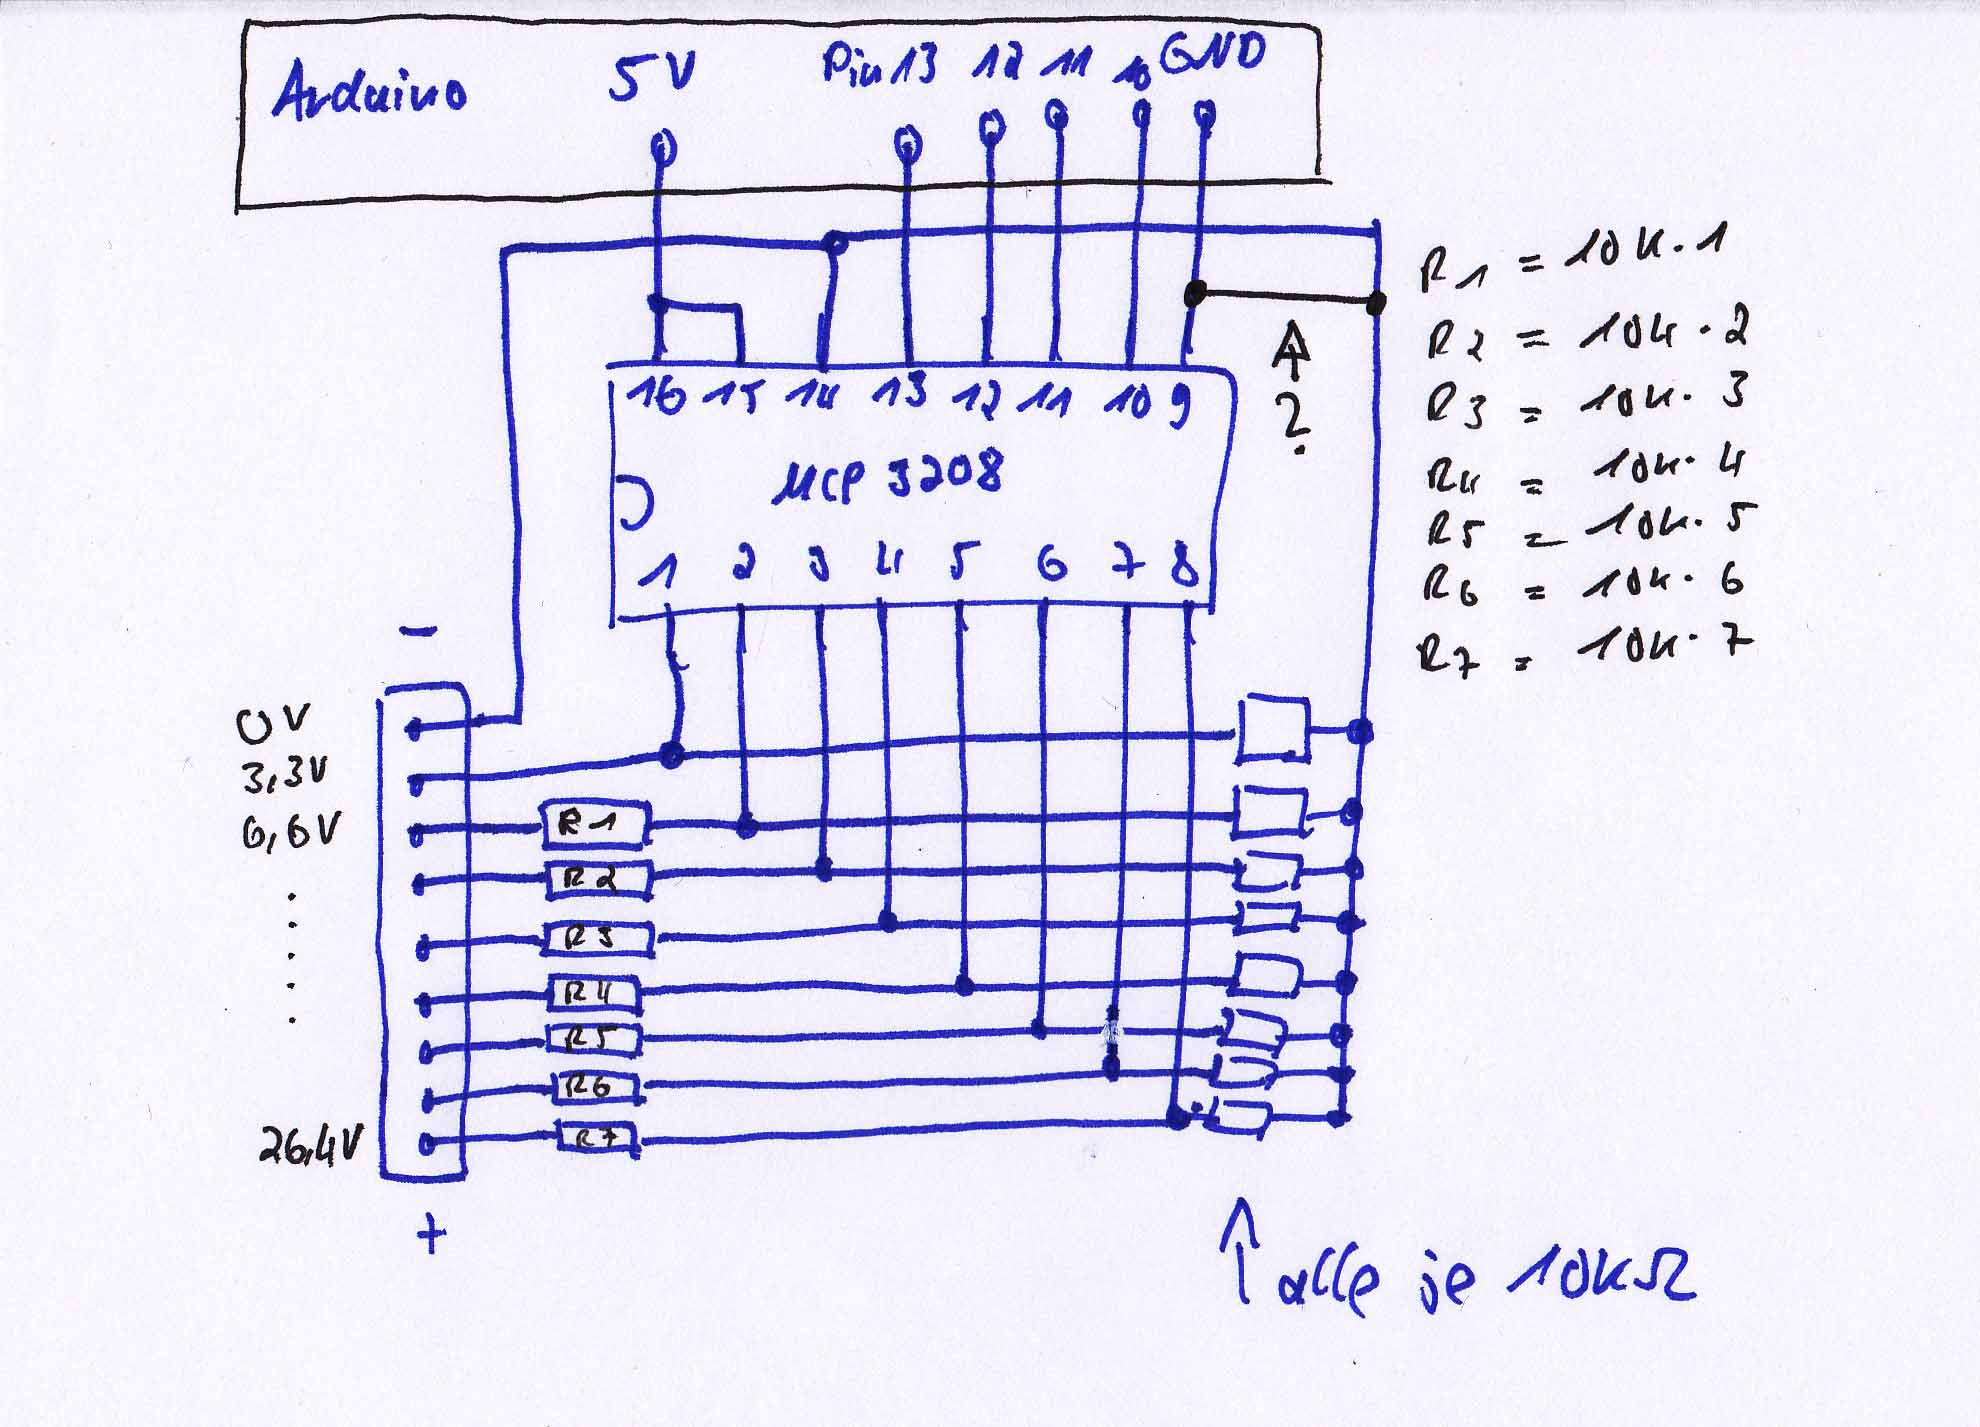 Arduino 5V Pin 13 12 11 10 GND
R1 = 10K·1
R2 = 10K·2
R3 = 10K·3
R4 = 10K·4
R5 = 10K·5
R6 = 10K·6
R7 = 10K·7
?
16 15 14 13 12 11 10 9
MCP 3208
1 2 3 4 5 6 7 8
-
0V
3,3V
6,6V
R1
R2
R3
R4
R5
R6
26,4V
R7
+
alle je 10KΩ